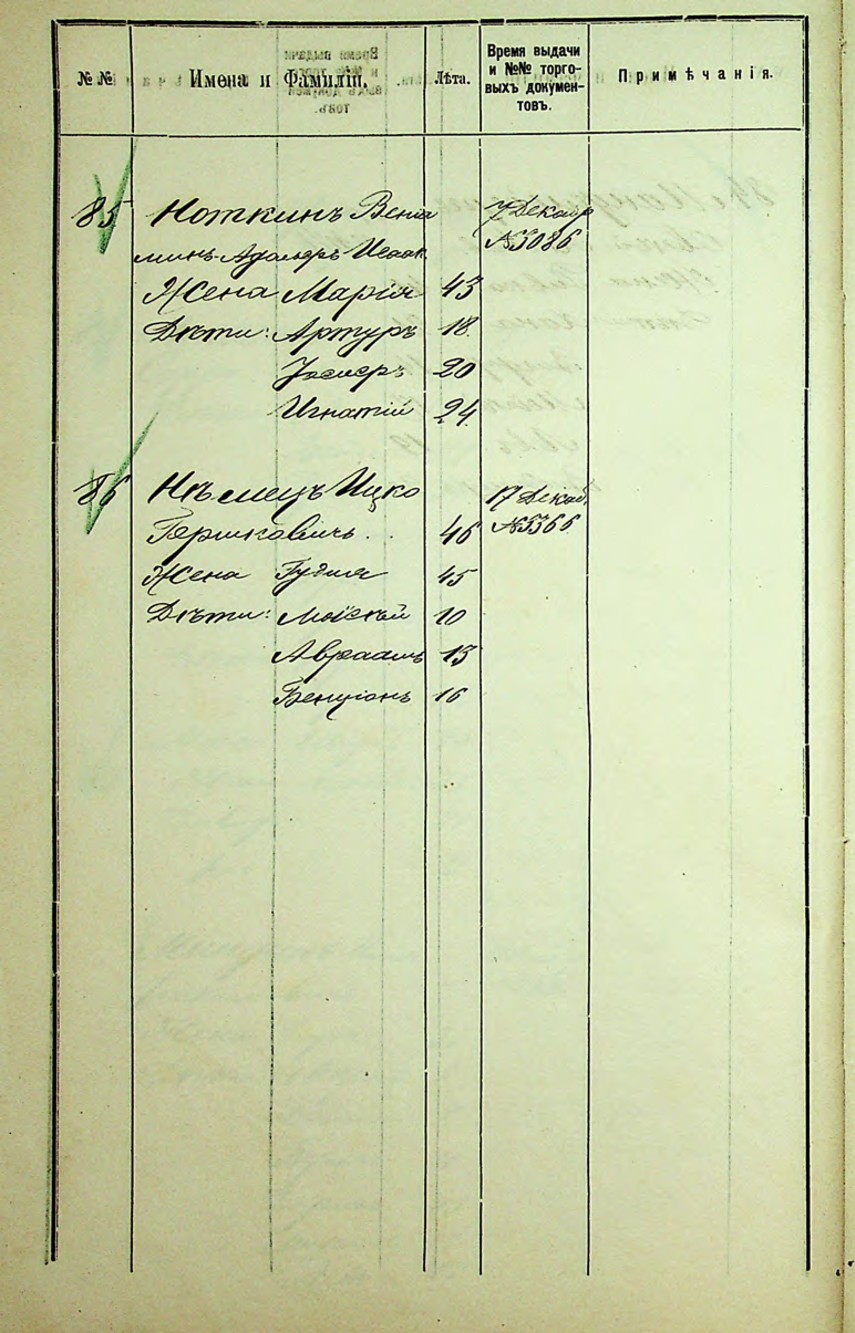 № №
Имена и Фамиліи.
Лѣта.
Время выдачи
и №№ торго-
выхъ докумен-
товъ.
Примѣчанія.
85 Ноткинъ Веніа 7 Декабр
минъ-Адольфъ Исаак. №5086
Жена Марія 43
Дѣти: Артуръ 18.
20
Игнатій 24.
86 Нѣмецъ Ицко 17 Декаб.
Гершковичъ . . 46 №5366
Жена Гудия 45
Дѣти: Моісѣй 10
Авраамъ 13
Бенціонъ 16